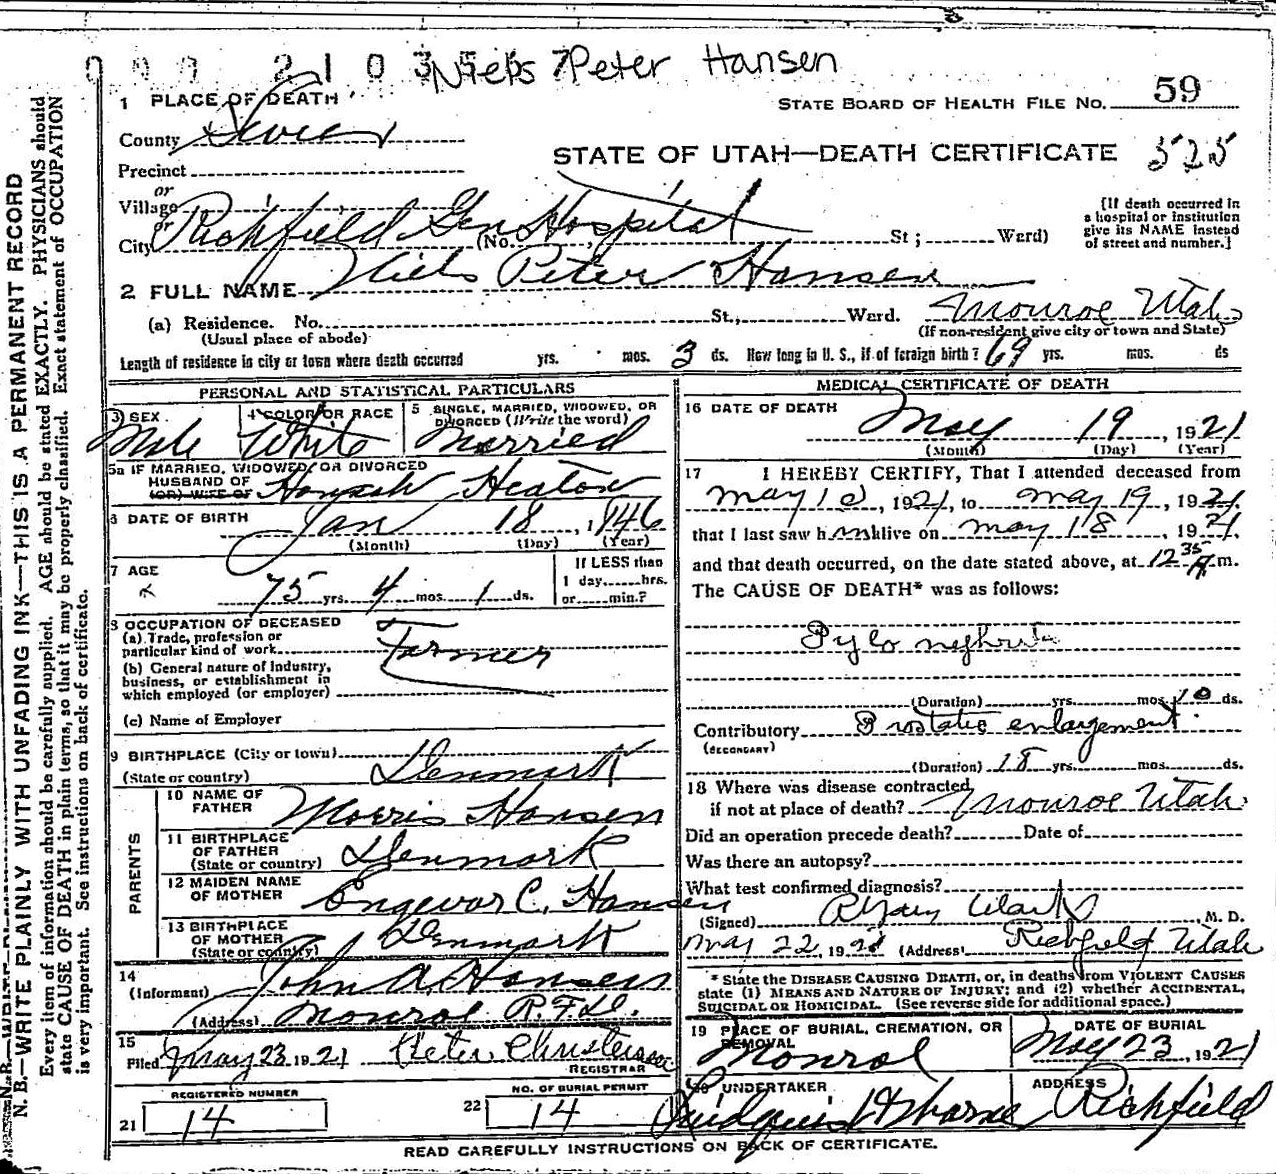 Niels Peter Hansen
1 PLACE OF DEATH
STATE BOARD OF HEALTH FILE NO. 59
County Sevier
STATE OF UTAH—DEATH CERTIFICATE 525
Precinct
or
Village
or
City Richfield Gen Hospital (No. St; Ward)
[If death occurred in
a hospital or institution
give its NAME instead
of street and number.]
2 FULL NAME Niels Peter Hansen
(a) Residence. No. St., Ward. Monroe Utah
(Usual place of abode) (If non-resident give city or town and State)
Length of residence in city or town where death occurred yrs. mos. 3 ds. How long in U. S., if of foreign birth? 69 yrs. mos. ds
PERSONAL AND STATISTICAL PARTICULARS
3 SEX Male
4 COLOR OR RACE White
5 SINGLE, MARRIED, WIDOWED, OR
DIVORCED (Write the word) Married
5a IF MARRIED, WIDOWED, OR DIVORCED
HUSBAND OF
(OR) WIFE OF Hannah Heaton
6 DATE OF BIRTH Jan 18, 1846
(Month) (Day) (Year)
7 AGE
75 yrs. 4 mos. 1 ds.
If LESS than
1 day......hrs.
or......min.?
8 OCCUPATION OF DECEASED
(a) Trade, profession or
particular kind of work Farmer
(b) General nature of industry,
business, or establishment in
which employed (or employer)
(c) Name of Employer
9 BIRTHPLACE (City or town)
(State or country) Denmark
PARENTS
10 NAME OF
FATHER Morris Hansen
11 BIRTHPLACE
OF FATHER
(State or country) Denmark
12 MAIDEN NAME
OF MOTHER Engevor C. Hansen
13 BIRTHPLACE
OF MOTHER
(State or country) Denmark
14
(Informant) John A. Hansen
(Address) Monroe R.F.D.
15
Filed May 23 1921 Peter Christensen
REGISTRAR
REGISTERED NUMBER
21 14
NO. OF BURIAL PERMIT
22 14
MEDICAL CERTIFICATE OF DEATH
16 DATE OF DEATH
May 19, 1921
(Month) (Day) (Year)
17 I HEREBY CERTIFY, That I attended deceased from
May 10, 1921, to May 19, 1921.
that I last saw him alive on May 18, 1921.
and that death occurred, on the date stated above, at 12 35 A m.
The CAUSE OF DEATH* was as follows:
Pylo nephritis
(Duration) yrs. mos. 10 ds.
Contributory Prostatic enlargement
(SECONDARY)
(Duration) 18 yrs. mos. ds.
18 Where was disease contracted
if not at place of death? Monroe Utah
Did an operation precede death? Date of
Was there an autopsy?
What test confirmed diagnosis?
(Signed) , M. D.
May 22, 1921 (Address) Richfield Utah
* State the DISEASE CAUSING DEATH, or, in deaths from VIOLENT CAUSES
state (1) MEANS AND NATURE OF INJURY; and (2) whether ACCIDENTAL,
SUICIDAL OR HOMICIDAL. (See reverse side for additional space.)
19 PLACE OF BURIAL, CREMATION, OR
REMOVAL Monroe
DATE OF BURIAL
May 23, 1921
20 UNDERTAKER
ADDRESS
Richfield
READ CAREFULLY INSTRUCTIONS ON BACK OF CERTIFICATE.
N. B.—WRITE PLAINLY WITH UNFADING INK—THIS IS A PERMANENT RECORD
Every item of information should be carefully supplied. AGE should be stated EXACTLY. PHYSICIANS should
state CAUSE OF DEATH in plain terms, so that it may be properly classified. Exact statement of OCCUPATION
is very important. See instructions on back of certificate.